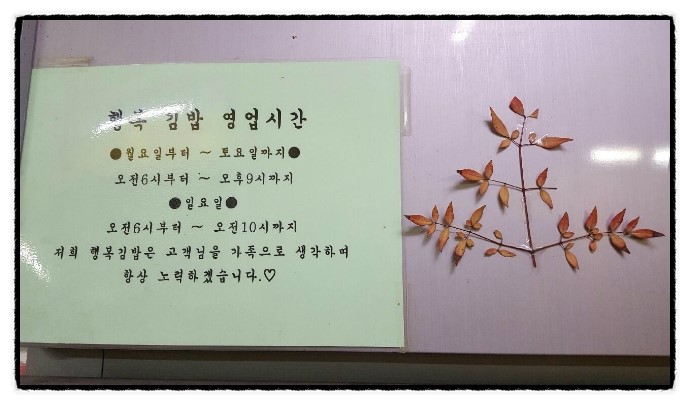 행복 김밥 영업시간
●월요일부터 ~ 토요일까지●
오전6시부터 ~ 오후9시까지
●일요일●
오전6시부터 ~ 오전10시까지
저희 행복김밥은 고객님을 가족으로 생각하며
항상 노력하겠습니다.♡